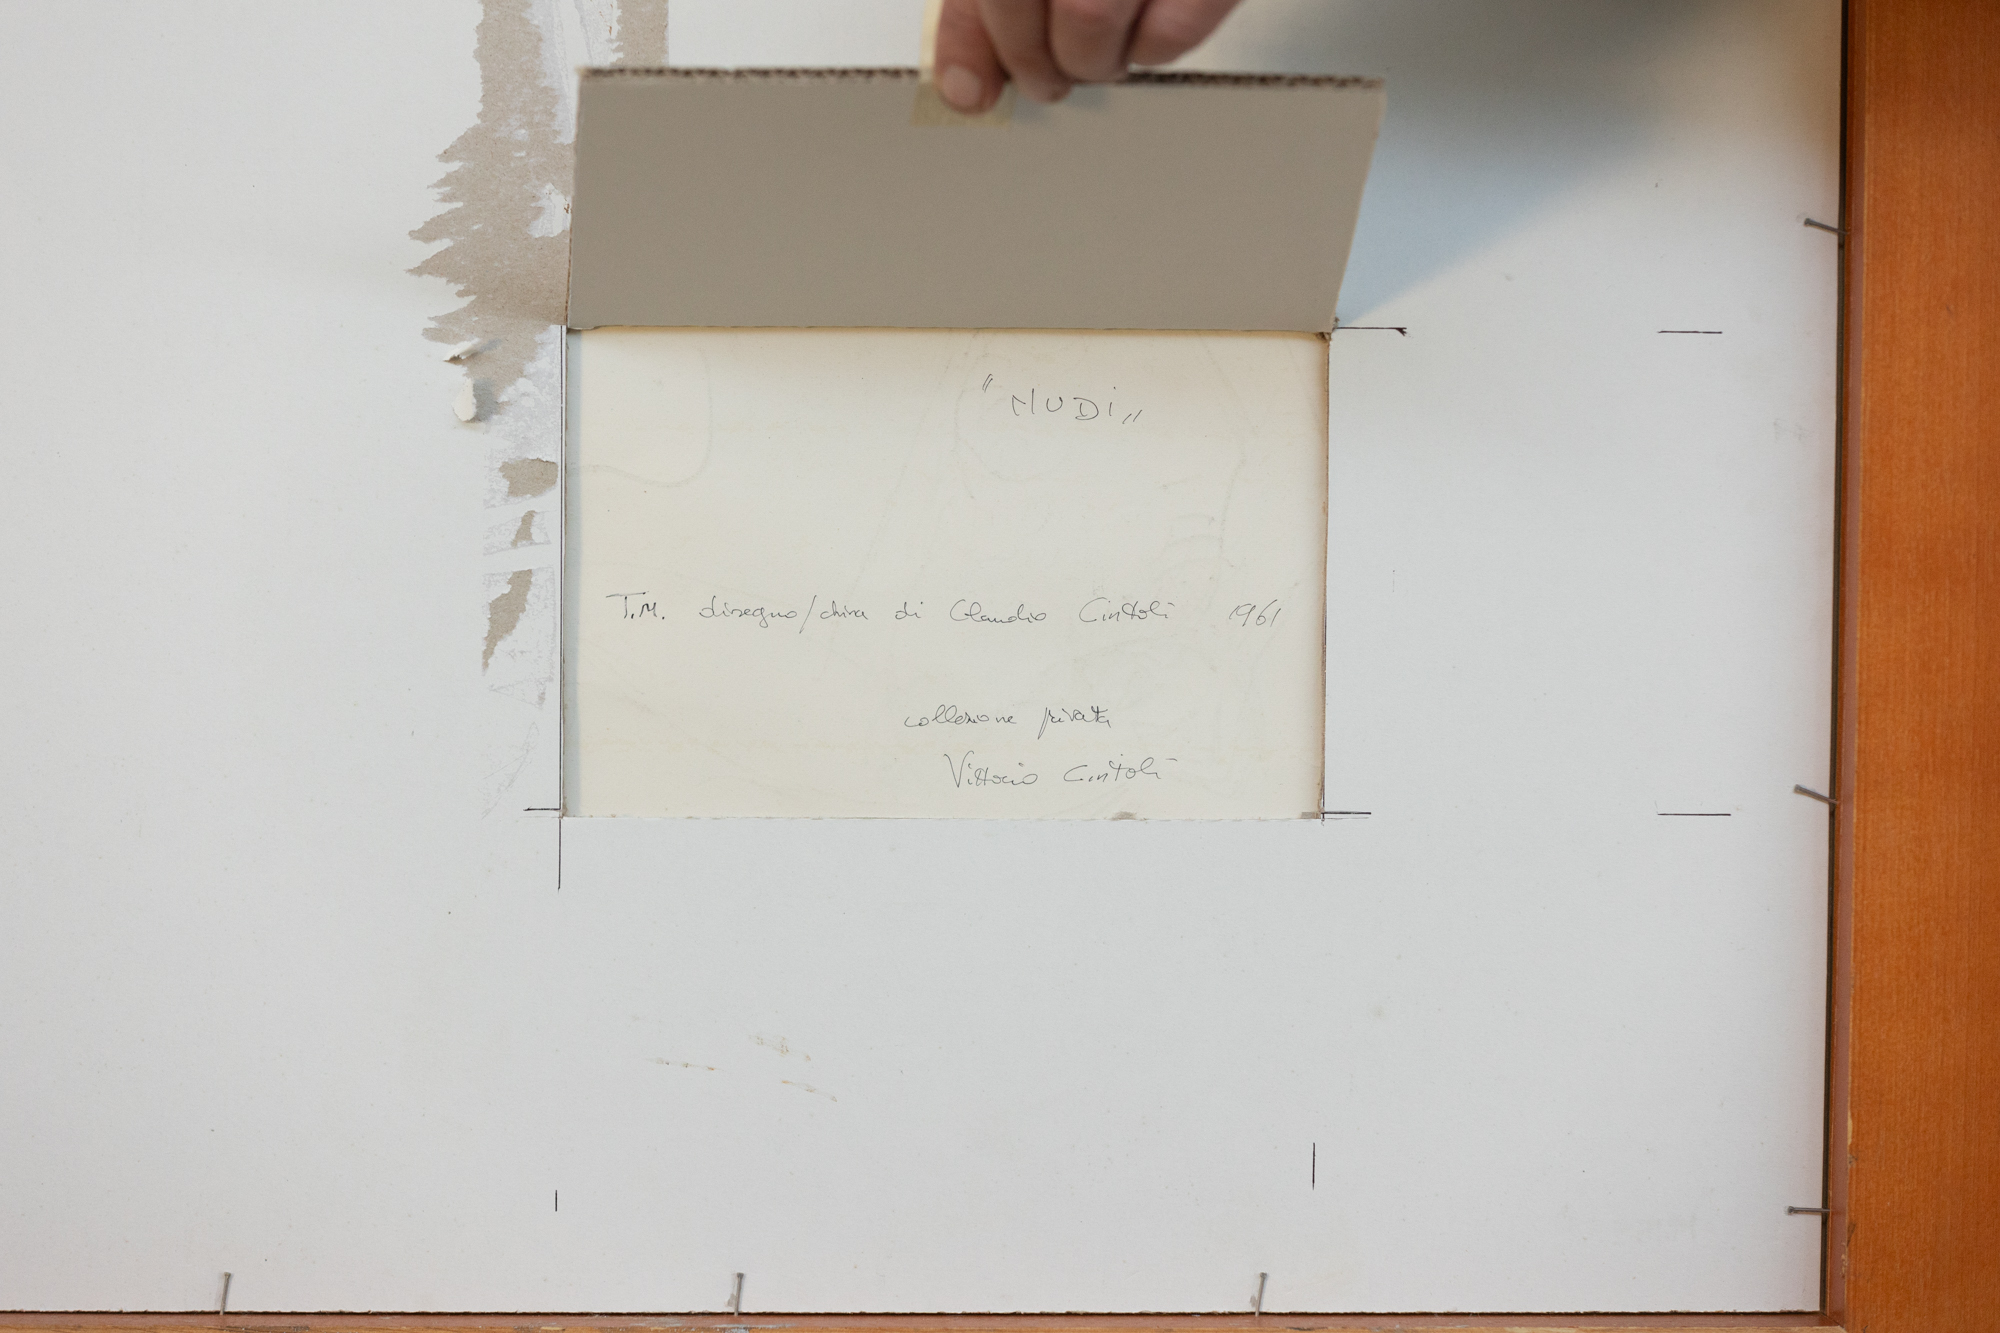 "NUDi"
T.M. disegno/china di Claudio Cintoli 1961
collezione privata
Vittorio Cintoli